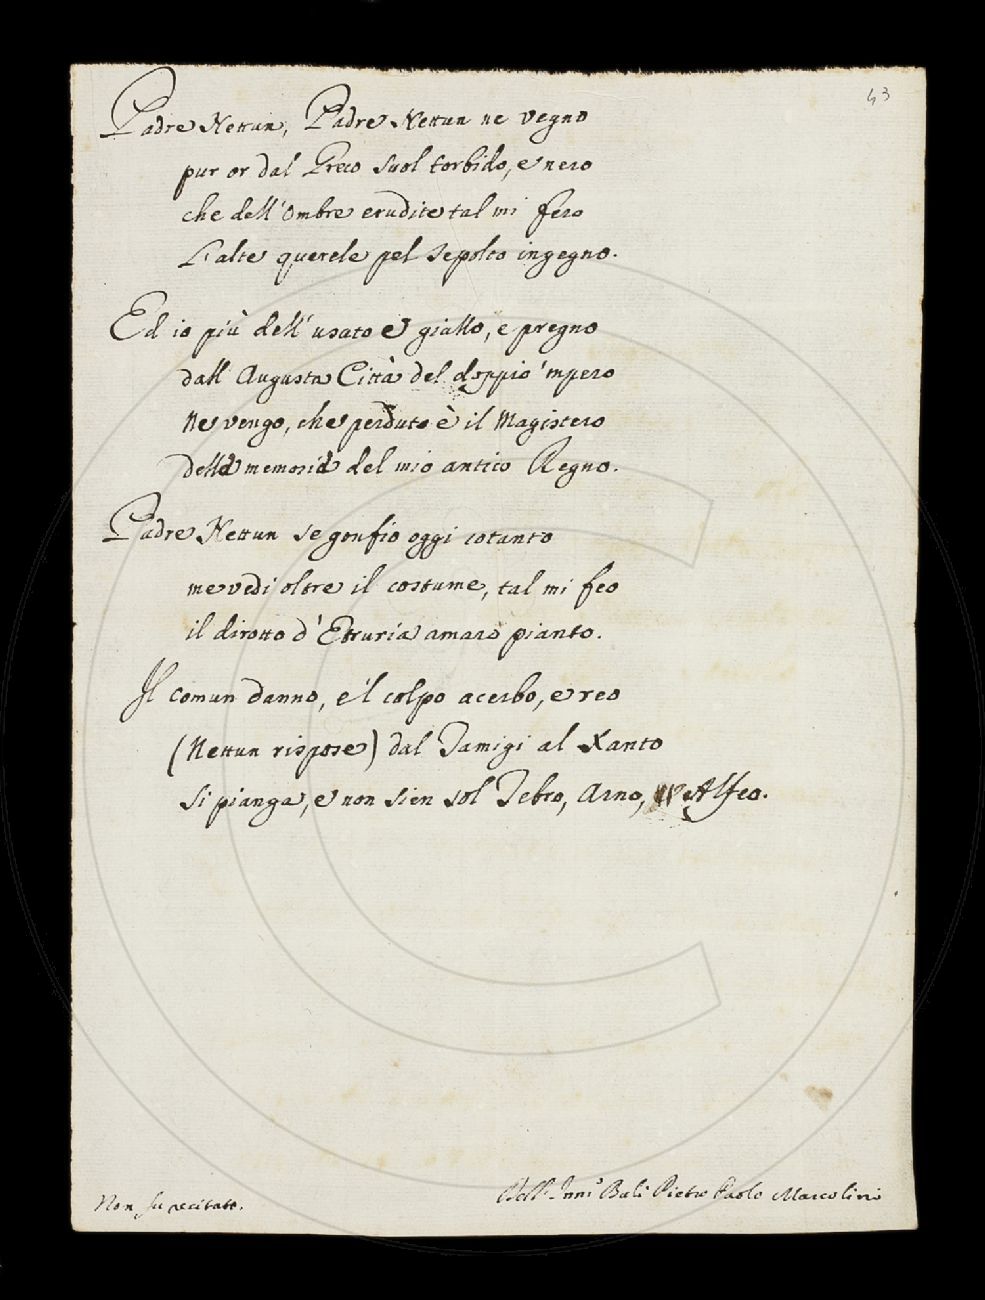 43
Padre Nettun, Padre Nettun ne vegno
pur or dal Greco suol torbido, e nero
che dell'ombre erudite tal mi fero
L'alte querele pel sepolto ingegno.
Ed io più dell'usato e giallo, e pregno
dall Augusta Città del doppio 'mpero
Ne vengo, che perduto è il Magistero
della memoria del mio antico Regno.
Padre Nettun se gonfio oggi cotanto
me vedi oltre il costume, tal mi feo
il dirotto d'Etruria amaro pianto.
Il comun danno, e'l colpo acerbo, e reo
(Nettun rispose) dal Tamigi al Xanto
si pianga, e non sien sol Tebro, Arno, Alfeo.
Non fu recitato.
Dell' Bali Pietro Paolo Marcolini